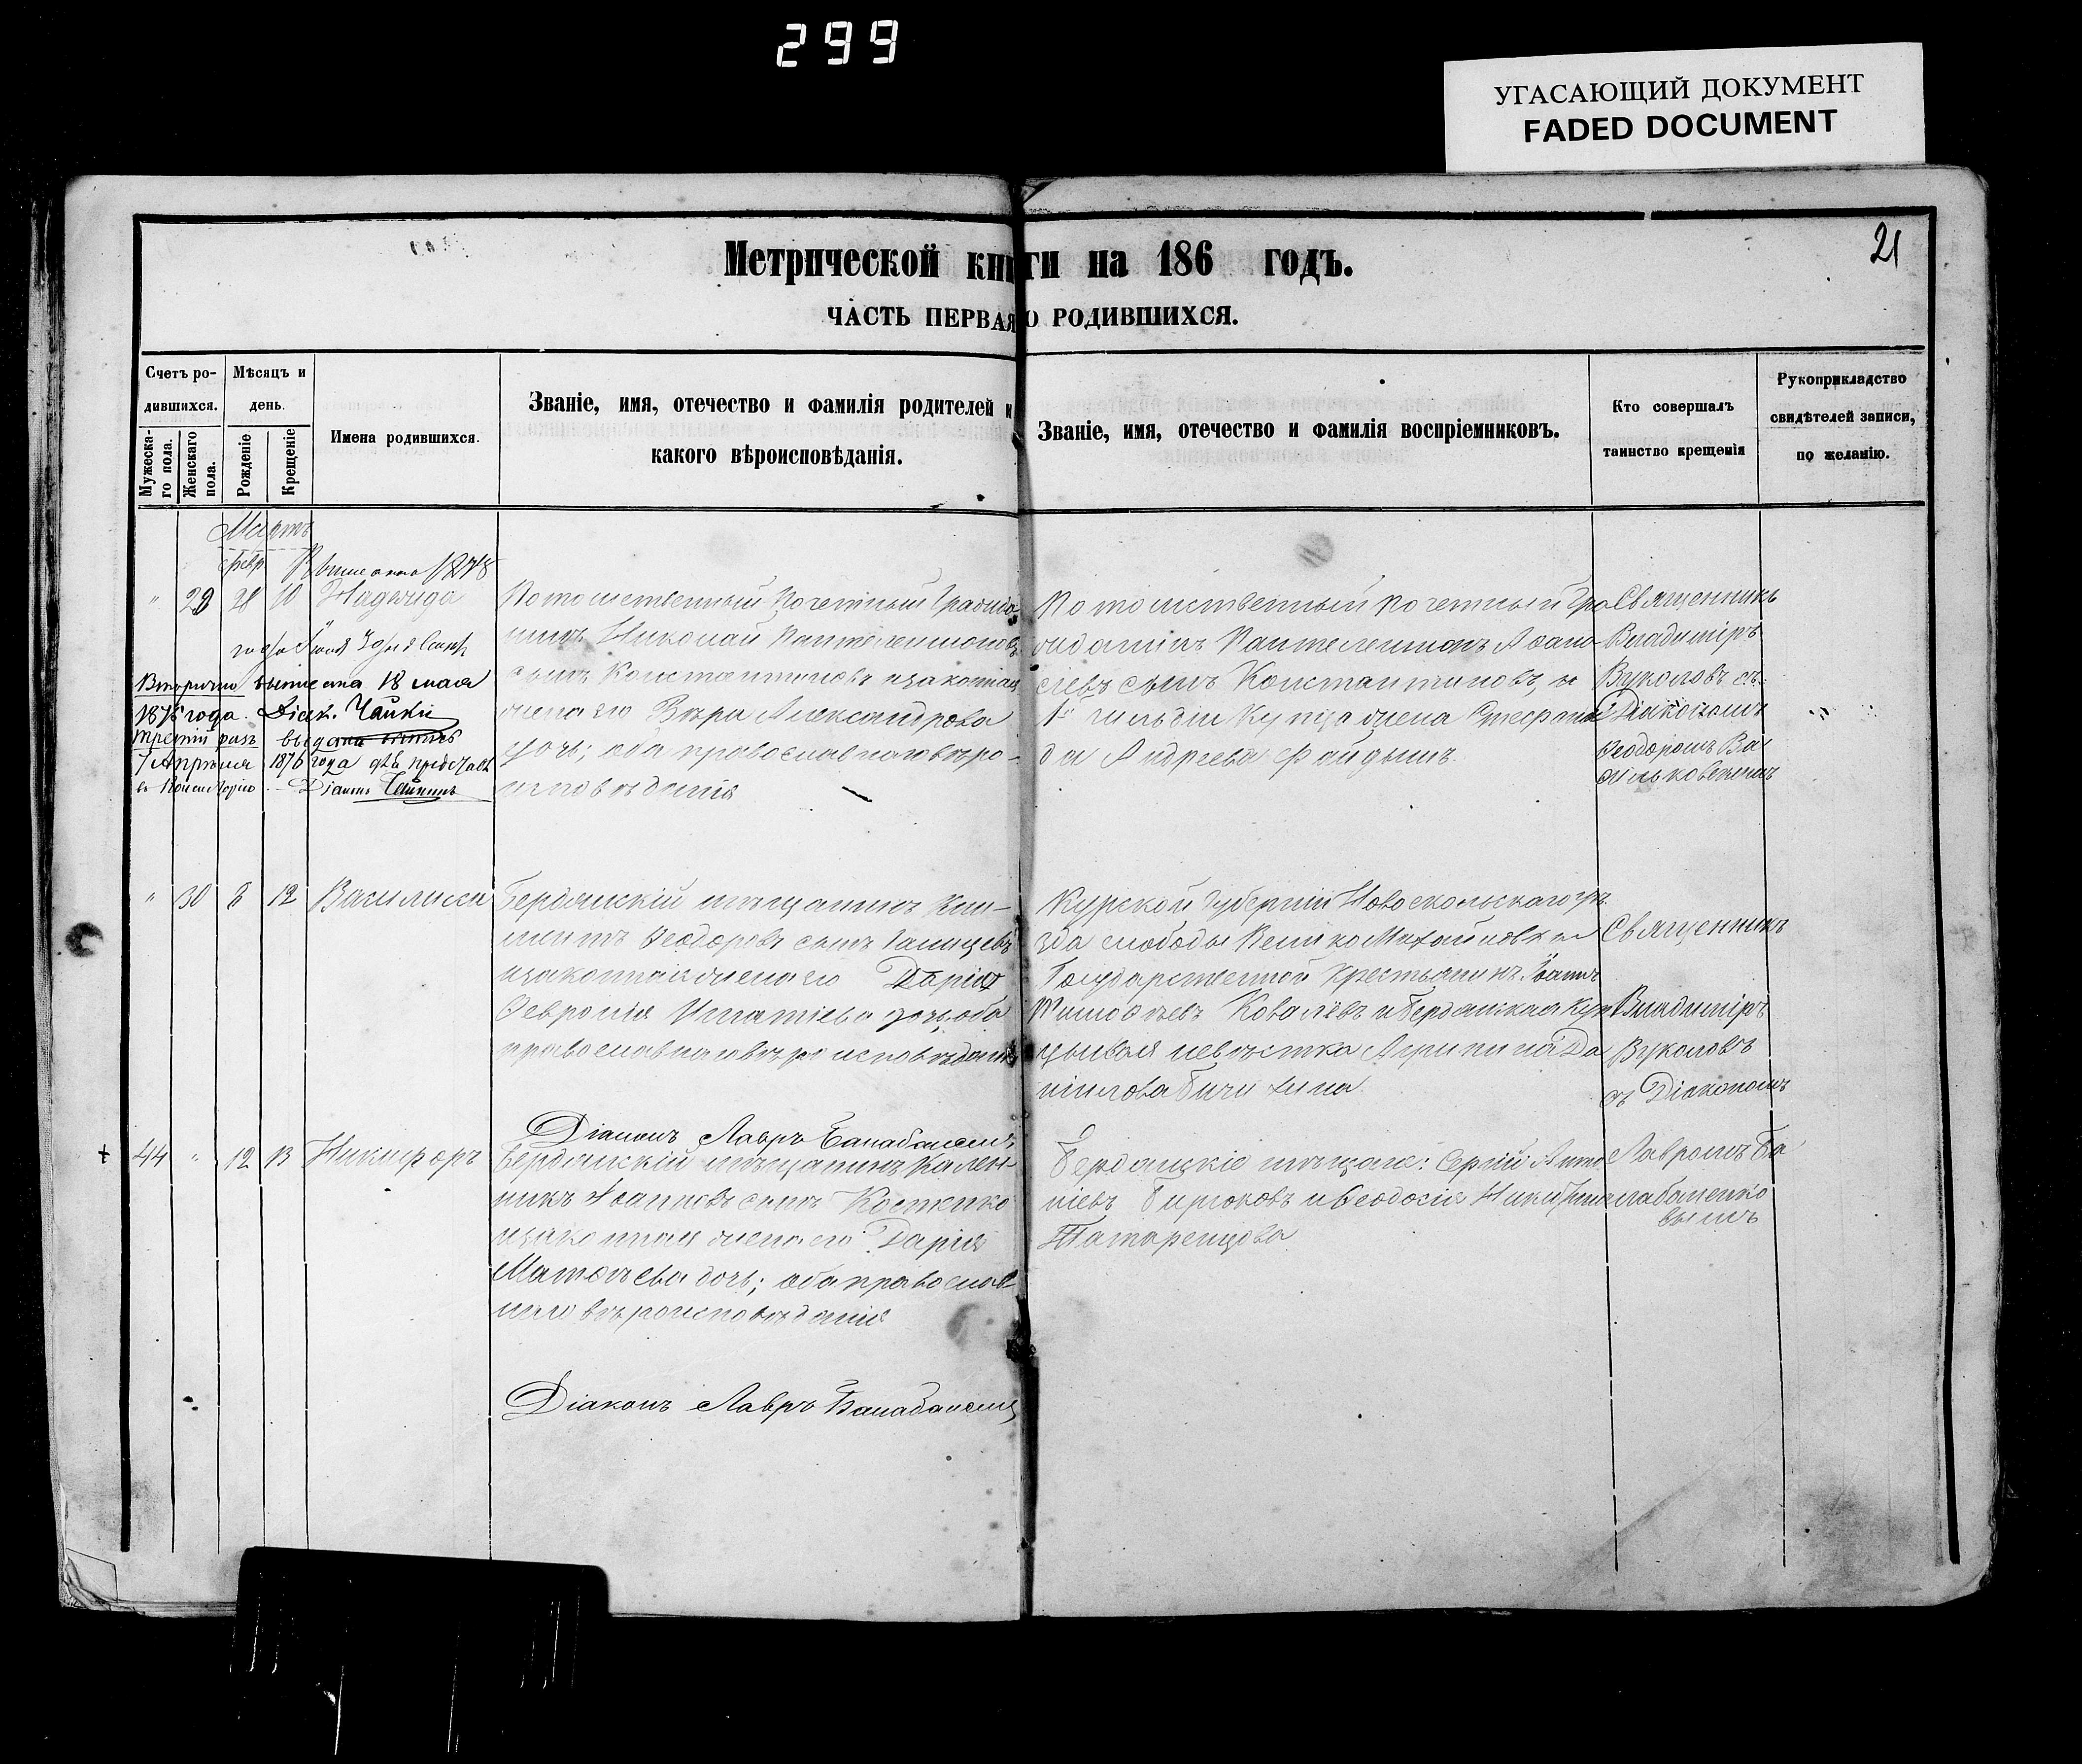 299
УГАСАЮЩИЙ ДОКУМЕНТ
FADED DOCUMENT
21
Метрической книги на 186 годъ.
ЧАСТЬ ПЕРВАЯ О РОДИВШИХСЯ.
Счетъ родившихся.
Мужескаго пола.
Женскаго пола.
Мѣсяцъ и день.
Рожденіе
Крещеніе
Имена родившихся.
Званіе, имя, отечество и фамилія родителей и
какого вѣроисповѣданія.
Званіе, имя, отечество и фамилія воспріемниковъ.
Кто совершалъ
таинство крещенія
Рукоприкладство
свидѣтелей записи,
по желанію.
Мартъ
февр
" 29 28 10 Надежда
Вторично выписана 18 мая
1875 года. Діак. Чайкин
третій разъ выдана
7 Апрѣля 1876 года для
Діаконъ Чайкинъ
Потомственный Почетный Гражда
нинъ Николай Пантелеимоновъ
сынъ Константиновъ и законная
жена его Вѣра Александрова
дочь; оба православнаго вѣро-
исповѣданія
Потомственный почетный Гра
жданинъ Пантелеимонъ Аѳана
сіевъ сынъ Константиновъ, и
1й гильдіи Купца жена Стефани
да Андреева Файдышъ.
Священникъ
Владиміръ
Вуколовъ съ
Діакономъ
Ѳеодоромъ Ва
сильковскимъ
" 30 8 12 Василисса
Бердянскій мѣщанинъ Кли-
ментъ Ѳеодоровъ сынъ
и законная жена его
Ѳевронія Игнатіева дочь, оба
православнаго вѣроисповѣданія
Курской Губерніи Новоскольскаго уѣ
зда слободы Велико Михайловки
Государственной крестьянинъ Іоаннъ
Тимоѳѣевъ Ковалёвъ и Бердянская Куп
цывая невѣстка Агрипина Да
ніилова Бичихина
Священникъ
Владиміръ
Вуколовъ
съ Діакономъ
Лавромъ Ба
лабаненко
вымъ
Діаконъ Лавръ Балабаненко
44 " 12 13 Никифоръ
Бердянскій мѣщанинъ Кален-
никъ Іоанновъ сынъ Костенко
и законная жена его Дарія
Матѳѣева дочь; оба православ
наго вѣроисповѣданія
Бердянскіе мѣщане: Сергій Анто
ніевъ Бирюковъ и Ѳеодосія Никитина
Татаренцова
Діаконъ Лавръ Балабаненко